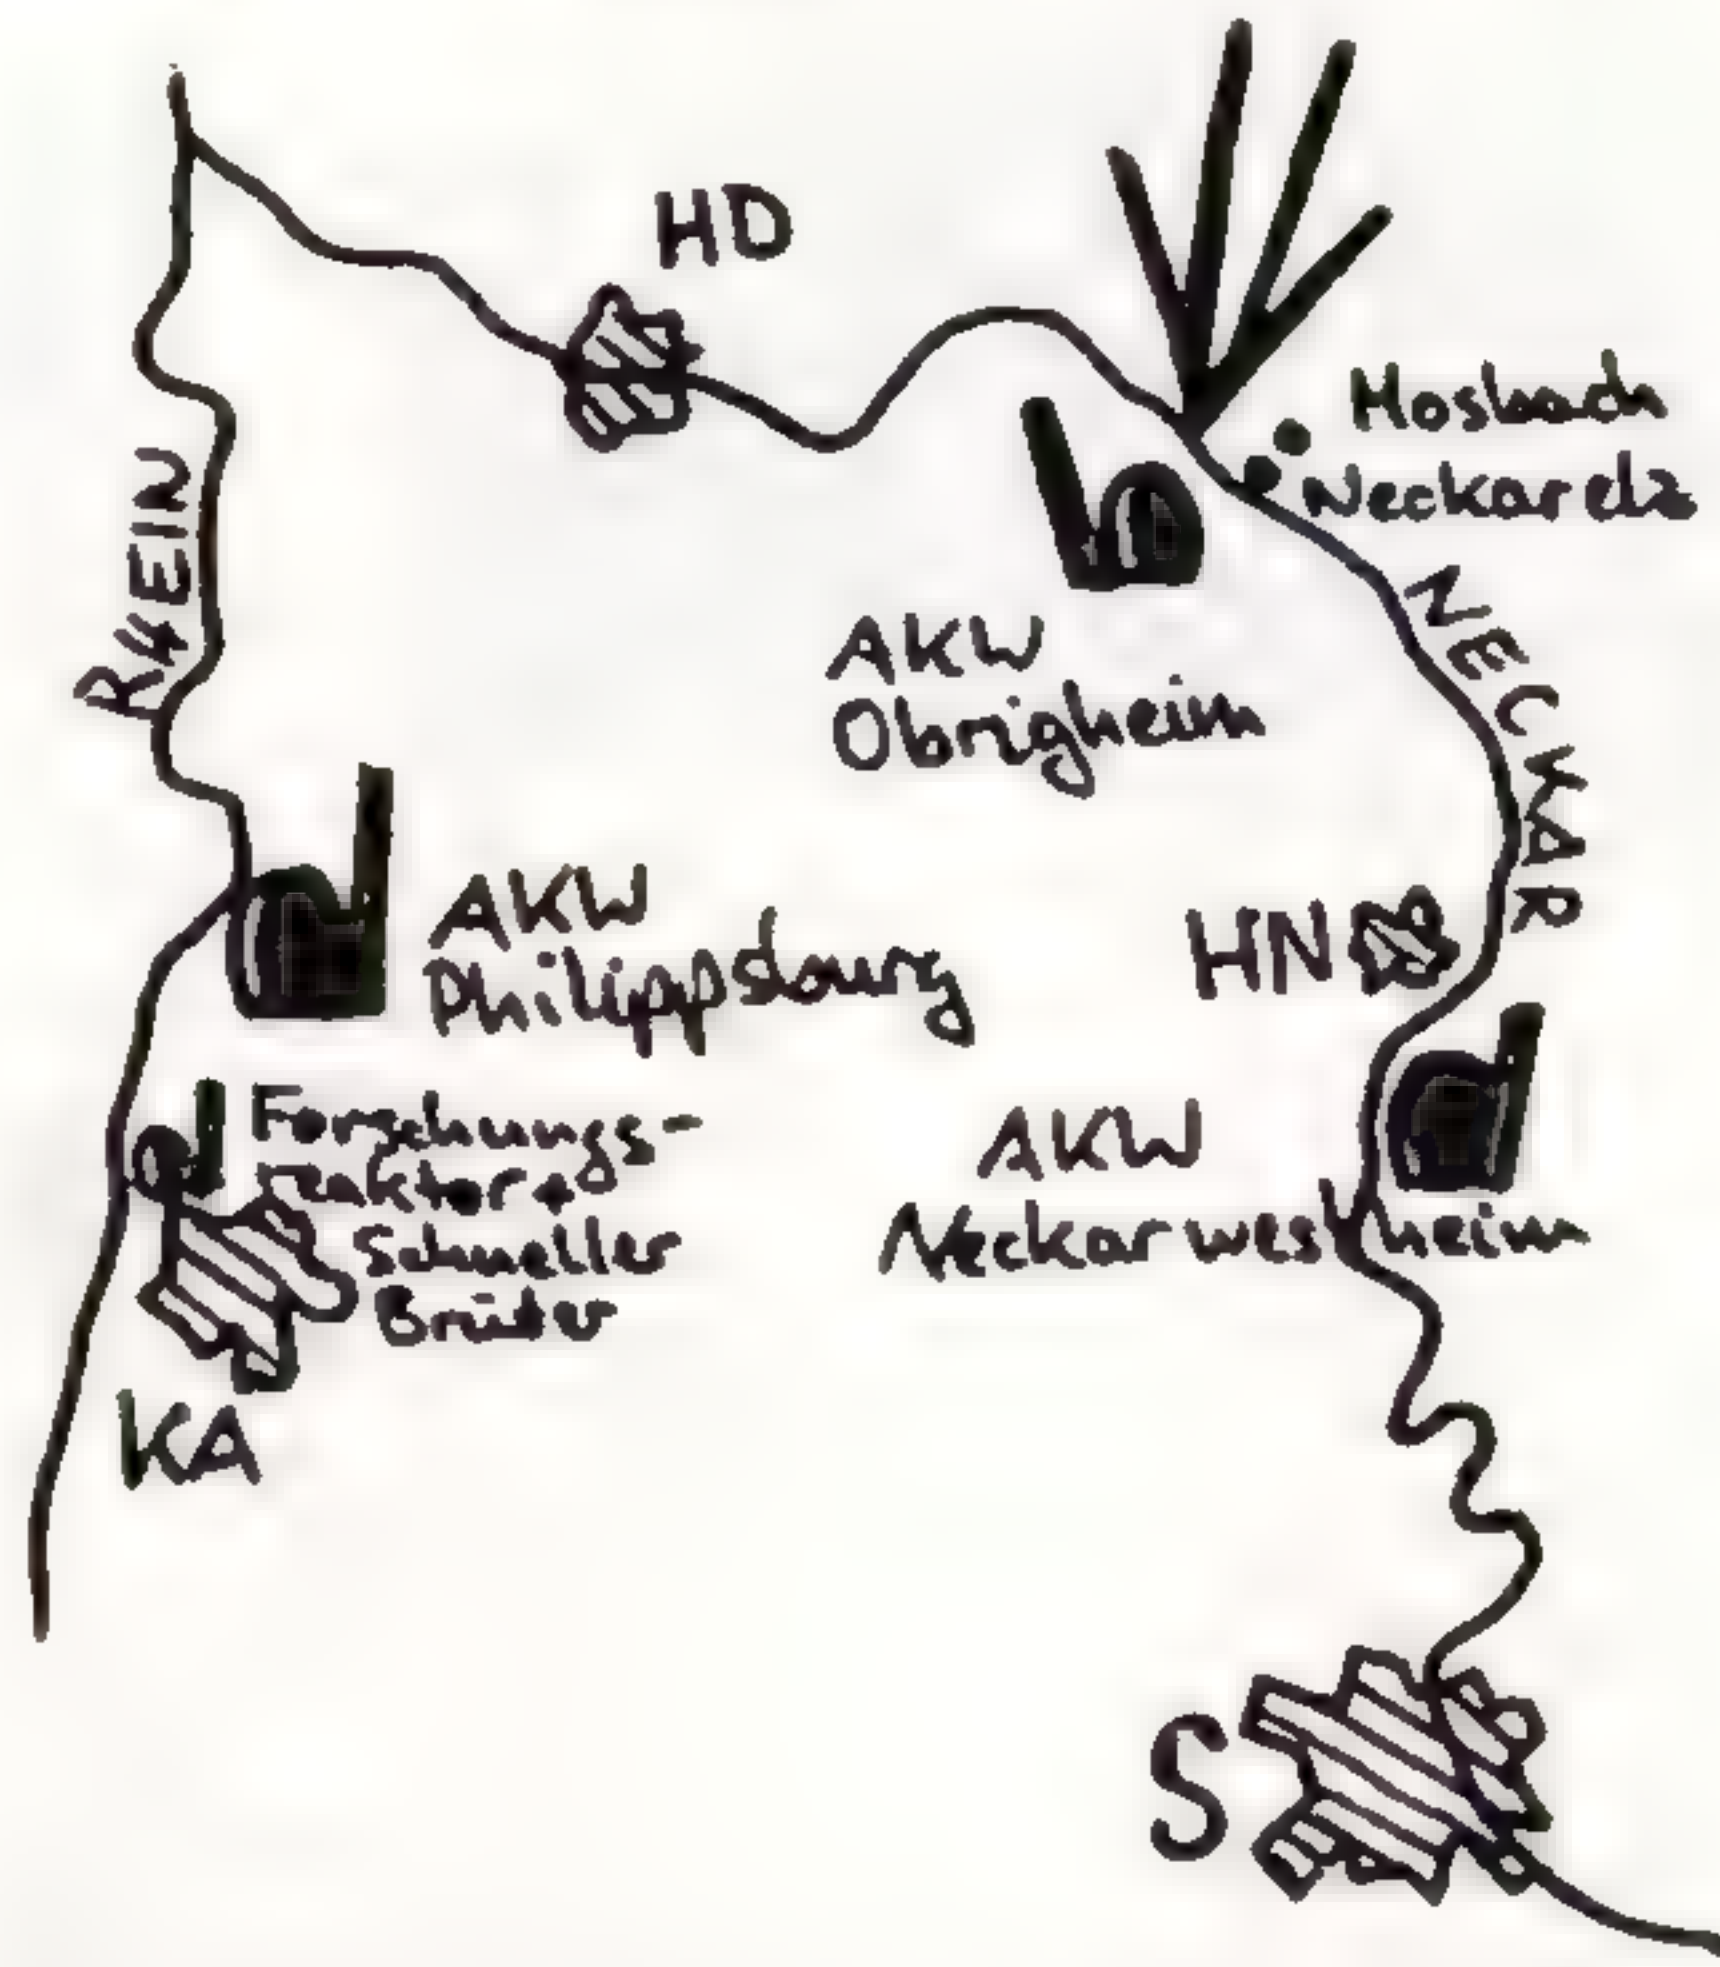 HD
Mosbach
Neckarelz
RHEIN
NECKAR
AKW
Obrigheim
AKW
Philippsburg
HN
Forschungs-
reaktor +
Schneller
Brüter
AKW
Neckarwestheim
KA
S